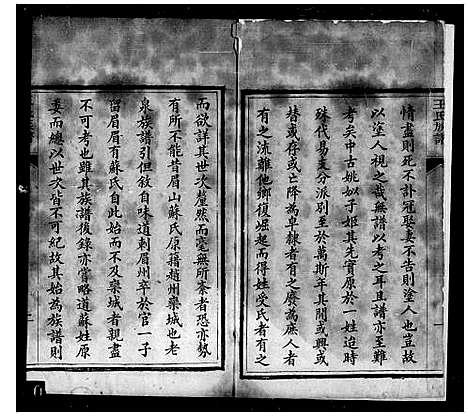 王氏族譜
情盡則死不訃冠娶妻不告則塗人也豈故
以塗人視之哉無譜以考之耳且譜亦至難
考矣中古姚姒子姬其先實原於一姓迨時
殊代易支分派別至於萬斯年其間或興或
替或存或亡降為皁隸者有之賡為庶人者
有之流離他鄉復堀起而得姓受氏者有之
一
而欲詳其世次釐然而毫無所紊者恐亦勢
有所不能昔眉山蘇氏原籍趙州欒城也老
泉族譜引但敘自味道刺眉州卒於官一子
留眉眉有蘇氏自此始而不及欒城者親盡
不可考也雖其族譜後錄亦嘗略道蘇姓原
委而總以世次皆不可紀故其始為族譜則
二